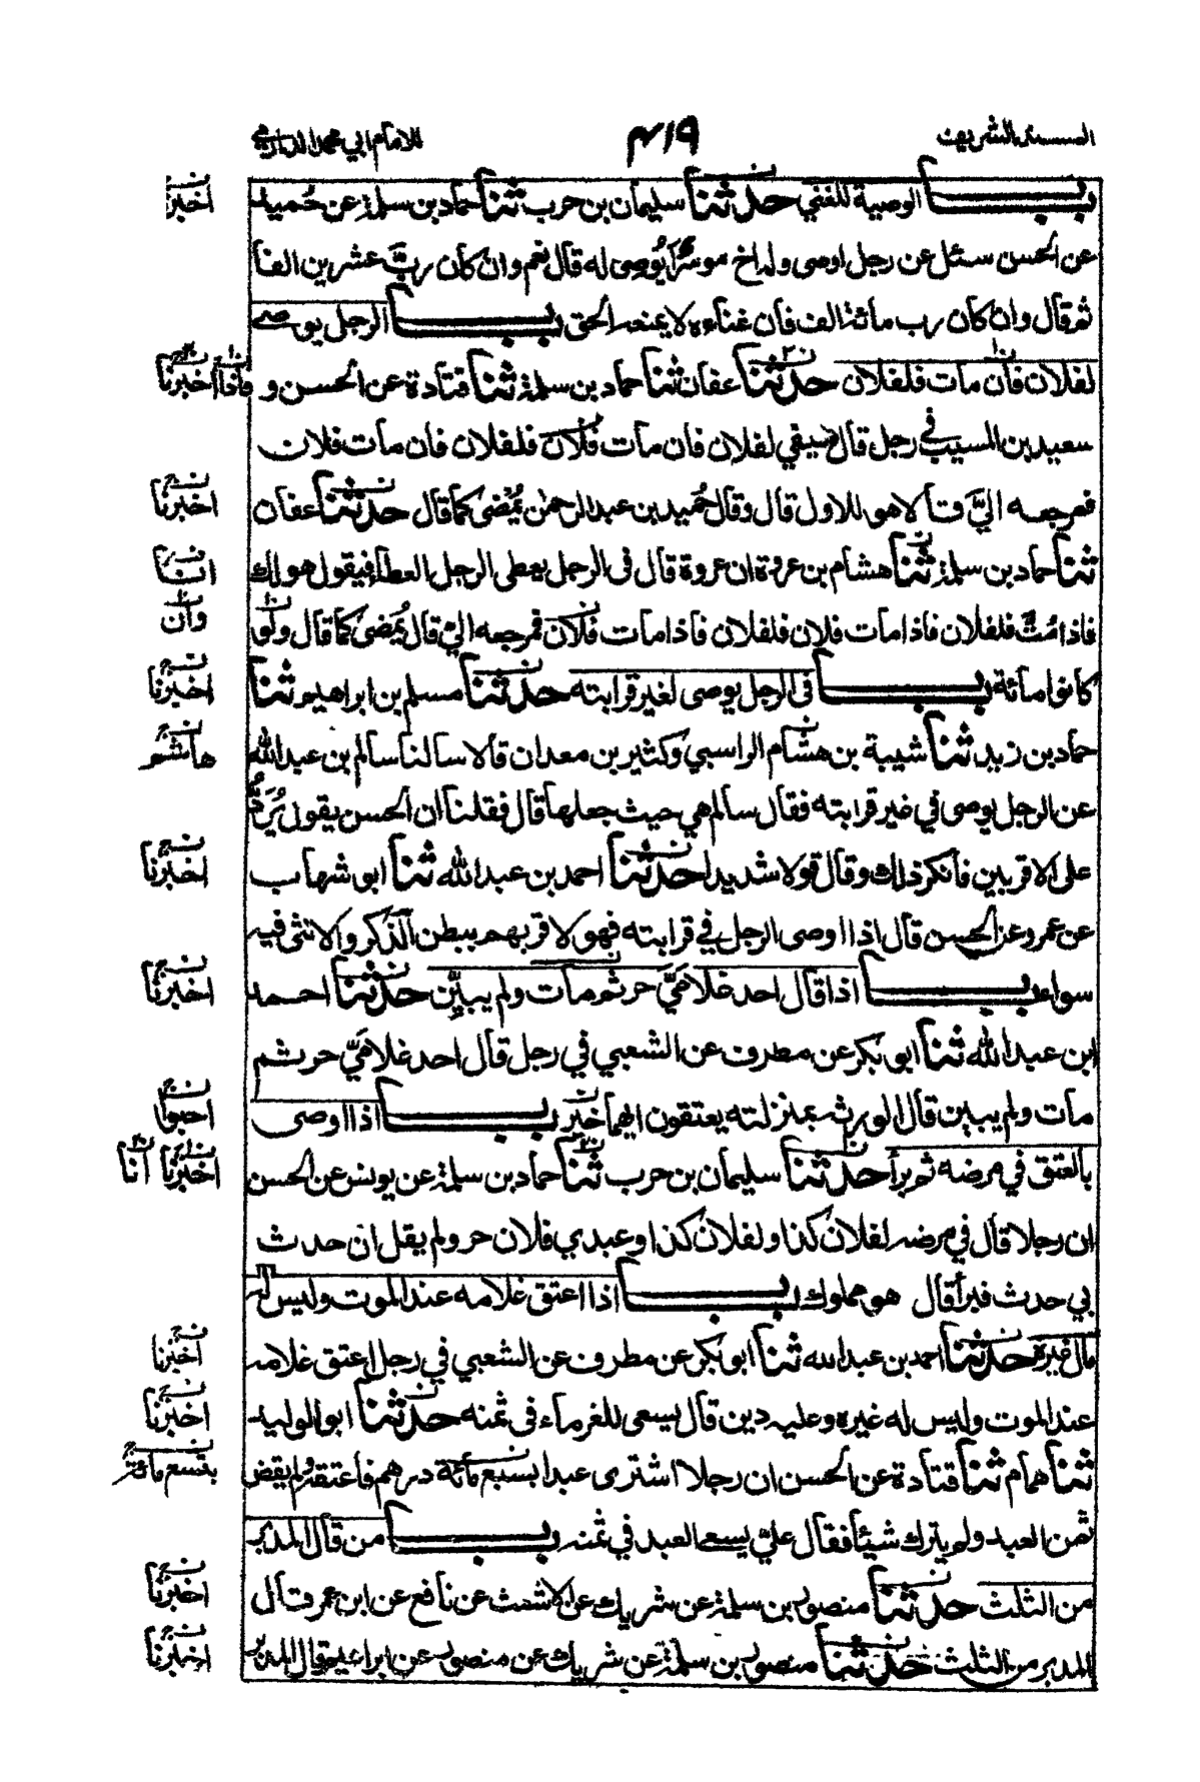 المسند الشريف ٤١٩ للامام ابي محمد الدارمي
باب الوصية للغني حدثنا سليمان بن حرب ثنا حماد بن سلمة عن حُميد
اخبرنا
عن الحسن سئل عن رجل اوصى وله اخ موسراً يُوصى له قال نعم وان كان ربّ عشرين الفا
ثم قال وان كان رب مائة الف فان غناءه لا يمنعه الحق باب الرجل يوصى
لفلان فان مات فلفلان حدثنا عفان ثنا حماد بن سلمة ثنا قتادة عن الحسن و
فاذا اخبرنا
سعيد بن المسيب في رجل قال سيفي لفلان فان مات فلان فلفلان فان مات فلان
فمرجعه اليَّ قالا هو للاول قال وقال حُميد بن عبد الرحمن يُمْضٰى كما قال حدثنا عفان
اخبرنا
ثنا حماد بن سلمة ثنا هشام بن عروة ان عروة قال فى الرجل يعطى الرجل العطاء فيقول هو لك
انبا
فاذا مُتَّ فلفلان فاذا مات فلان فلفلان فاذا مات فلان فمرجعه اليّ قال يُمضى كما قال ولو
وان
كانوا مائة باب فى الرجل يوصى لغير قرابته حدثنا مسلم بن ابراهيم ثنا
اخبرنا
حماد بن زيد ثنا شيبة بن هشام الراسبي وكثير بن معدان قالا سالنا سالم بن عبد الله
هاشم
عن الرجل يوصى في غير قرابته فقال سالم هي حيث جعلها قال فقلنا ان الحسن يقول يُرَدُّ
على الاقربين فانكر ذلك وقال قولا شديدا حدثنا احمد بن عبد الله ثنا ابو شهاب
اخبرنا
عن عمرو عن الحسن قال اذا اوصى الرجل في قرابته فهو لاقربهم ببطن الذكر والانثى فيه
سواء باب اذا قال احد غلامَيَّ حر ثم مات ولم يبيِّن حدثنا احمد
اخبرنا
ابن عبد الله ثنا ابو بكر عن مطرف عن الشعبي في رجل قال احد غلامَيَّ حر ثم
مات ولم يبين قال الورثة بمنزلته يعتقون ايهما اخبر باب اذا اوصى
احبوا
بالعتق في مرضه ثم برأ حدثنا سليمان بن حرب ثنا حماد بن سلمة عن يونس عن الحسن
اخبرنا انا
ان رجلا قال في مرضه لفلان كذا ولفلان كذا وعبدي فلان حر ولم يقل ان حدث
بي حدث فبرأ قال هو مملوك باب اذا اعتق غلامه عند الموت وليس له
مال غيره حدثنا احمد بن عبد الله ثنا ابو بكر عن مطرف عن الشعبي في رجل اعتق غلامه
اخبرنا
عند الموت وليس له غيره وعليه دين قال يسعى للغرماء فى ثمنه حدثنا ابو الوليد
اخبرنا
ثنا همام ثنا قتادة عن الحسن ان رجلا اشترى عبدا بسبع مائة درهم فاعتقه ولم يقض
بتسع مائة
ثمن العبد ولم يترك شيئا فقال عليّ يسعى العبد في ثمنه باب من قال المدبر
من الثلث حدثنا منصور بن سلمة عن شريك عن الاشعث عن نافع عن ابن عمر قال
اخبرنا
المدبر من الثلث حدثنا منصور بن سلمة عن شريك عن منصور عن ابراهيم قال المدبر
اخبرنا